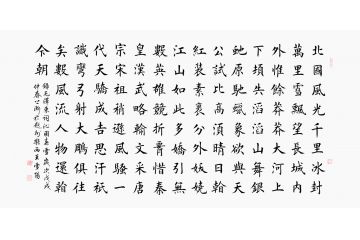 北國風光千里冰封
萬里雪飄望長城內
外惟餘莽莽大河上
下頓失滔滔山舞銀
蛇原馳蠟象欲與天
公試比高須晴日看
紅裝素裹分外妖嬈
江山如此多嬌引無
數英雄競折腰惜秦
皇漢武略輸文采唐
宗宋祖稍遜風騷一
代天驕成吉思汗祇
識彎弓射大鵰俱往
矣數風流人物還看
今朝
錄毛澤東詞沁園春雪歲次戊戌
仲春